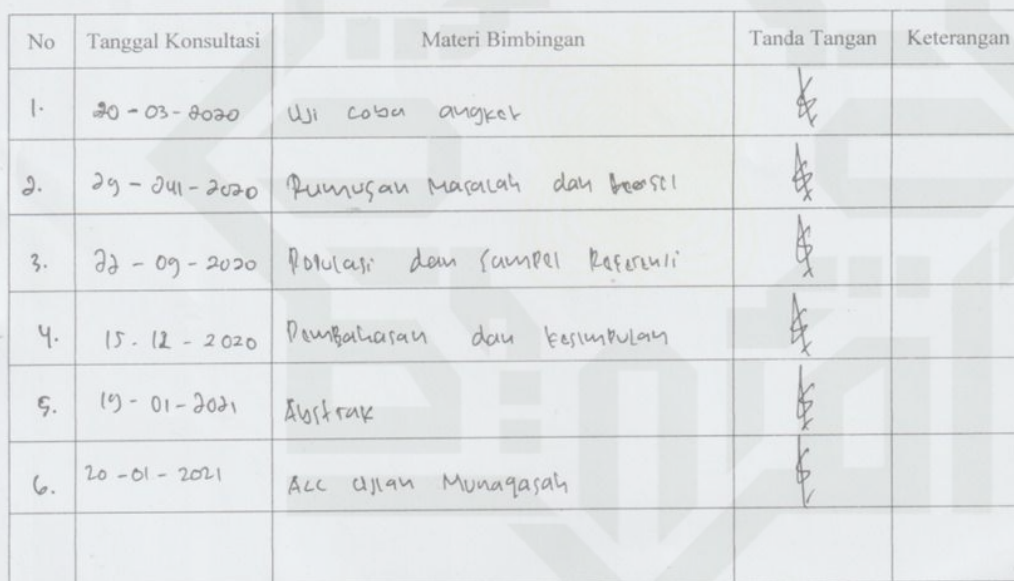 No Tanggal Konsultasi Materi Bimbingan Tanda Tangan Keterangan
1. 20-03-2020 Uji coba angket
2. 29 - Juli - 2020 Rumusan Masalah dan
3. 22 - 09 - 2020 Populasi dan Sampel Referensi
4. 15 . 12 - 2020 Pembahasan dan kesimpulan
5. 19 - 01 - 2021 Abstrak
6. 20 - 01 - 2021 Acc Ujian Munaqasah